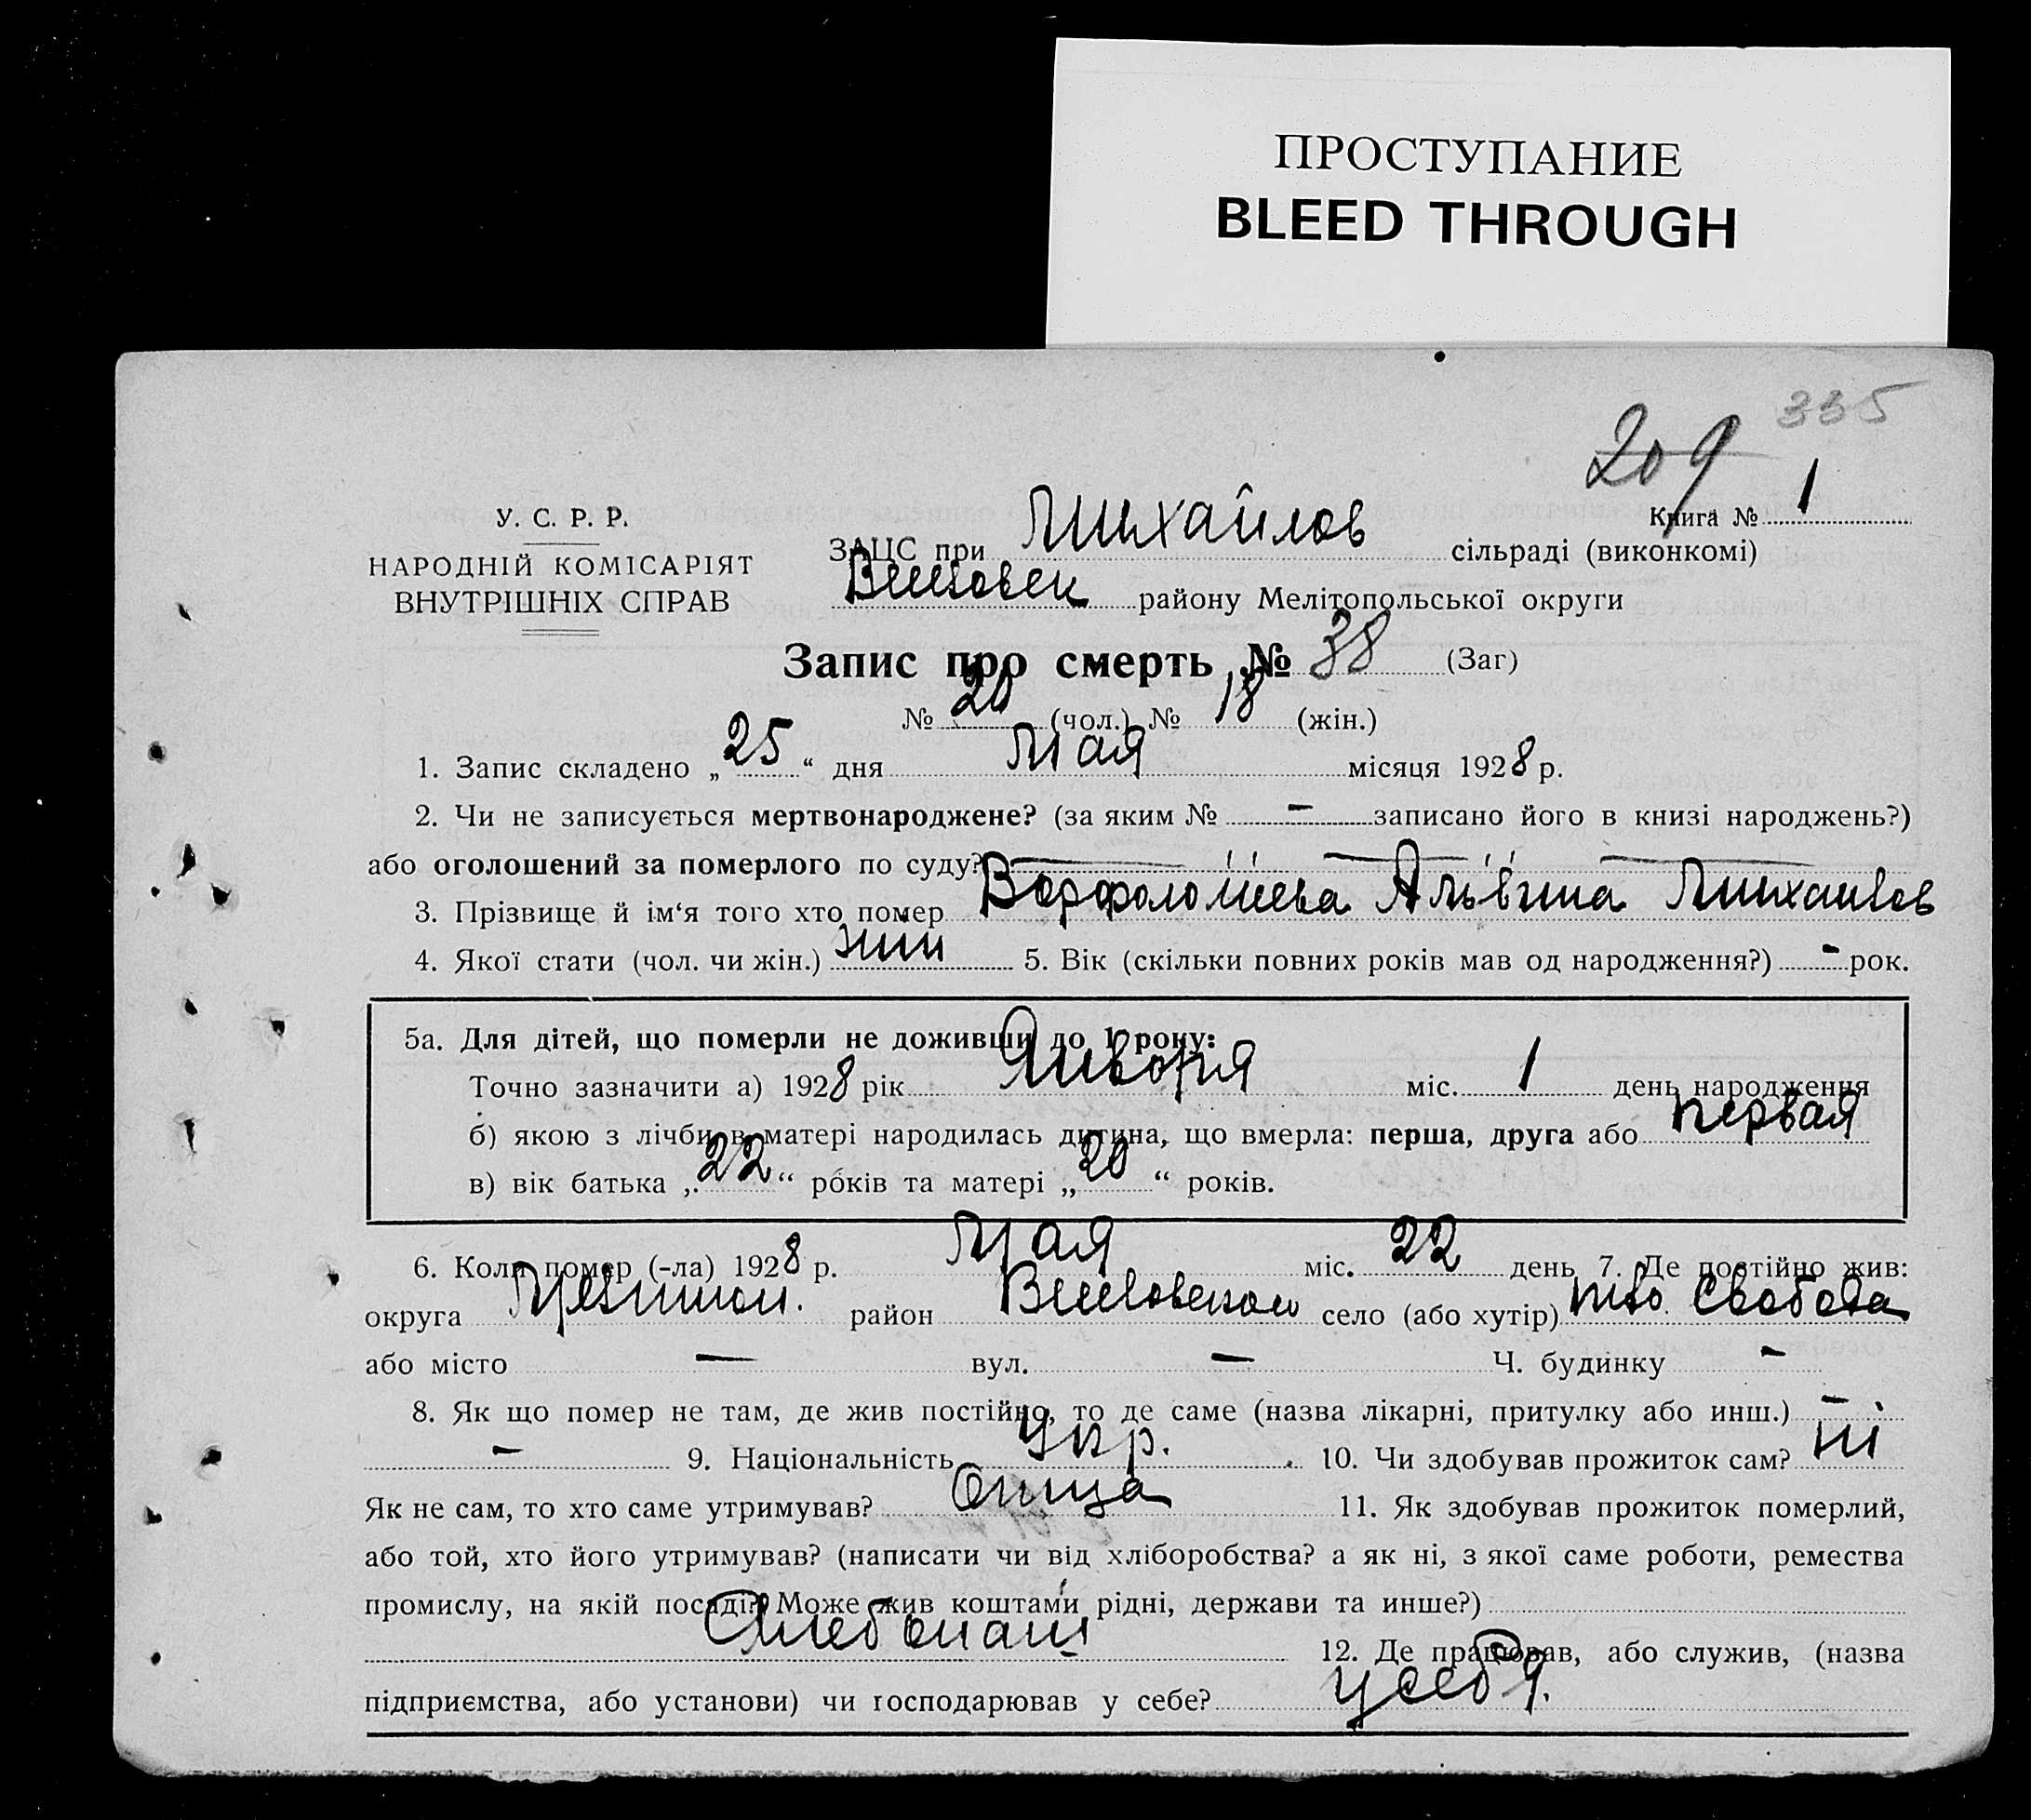 ПРОСТУПАНИЕ
BLEED THROUGH
335
209
У. С. Р. Р.
НАРОДНІЙ КОМІСАРІЯТ
ВНУТРІШНІХ СПРАВ
Книга № 1
ЗАЦС при Михайлов сільраді (виконкомі)
району Мелітопольської округи
Запис про смерть № 38 (Заг)
№ 20 (чол.) № 18 (жін.)
1. Запис складено „ 25 “ дня Мая місяця 1928 р.
2. Чи не записується мертвонароджене? (за яким № – записано його в книзі народжень?)
або оголошений за померлого по суду?
3. Прізвище й ім‘я того хто помер Варфоломеева Альвина Михаилов
4. Якої стати (чол. чи жін.) жин 5. Вік (скільки повних років мав од народження?) – рок.
5а. Для дітей, що померли не доживши до 1 року:
Точно зазначити а) 1928 рік Января міс. 1 день народження
б) якою з лічби в матері народилась дитина, що вмерла: перша, друга або первая
в) вік батька „ 22 “ років та матері „ 20 “ років.
6. Коли помер (-ла) 1928 р. Мая міс. 22 день 7. Де постійно жив:
округа район село (або хутір) Свобода
або місто – вул. – Ч. будинку –
8. Як що помер не там, де жив постійно, то де саме (назва лікарні, притулку або инш.) –
– 9. Національність Укр. 10. Чи здобував прожиток сам? ні
Як не сам, то хто саме утримував? Отца 11. Як здобував прожиток померлий,
або той, хто його утримував? (написати чи від хліборобства? а як ні, з якої саме роботи, ремества
промислу, на якій посаді? Може жив коштами рідні, держави та инше?)
Хлебопаш 12. Де працював, або служив, (назва
підприємства, або установи) чи господарював у себе? у себя.